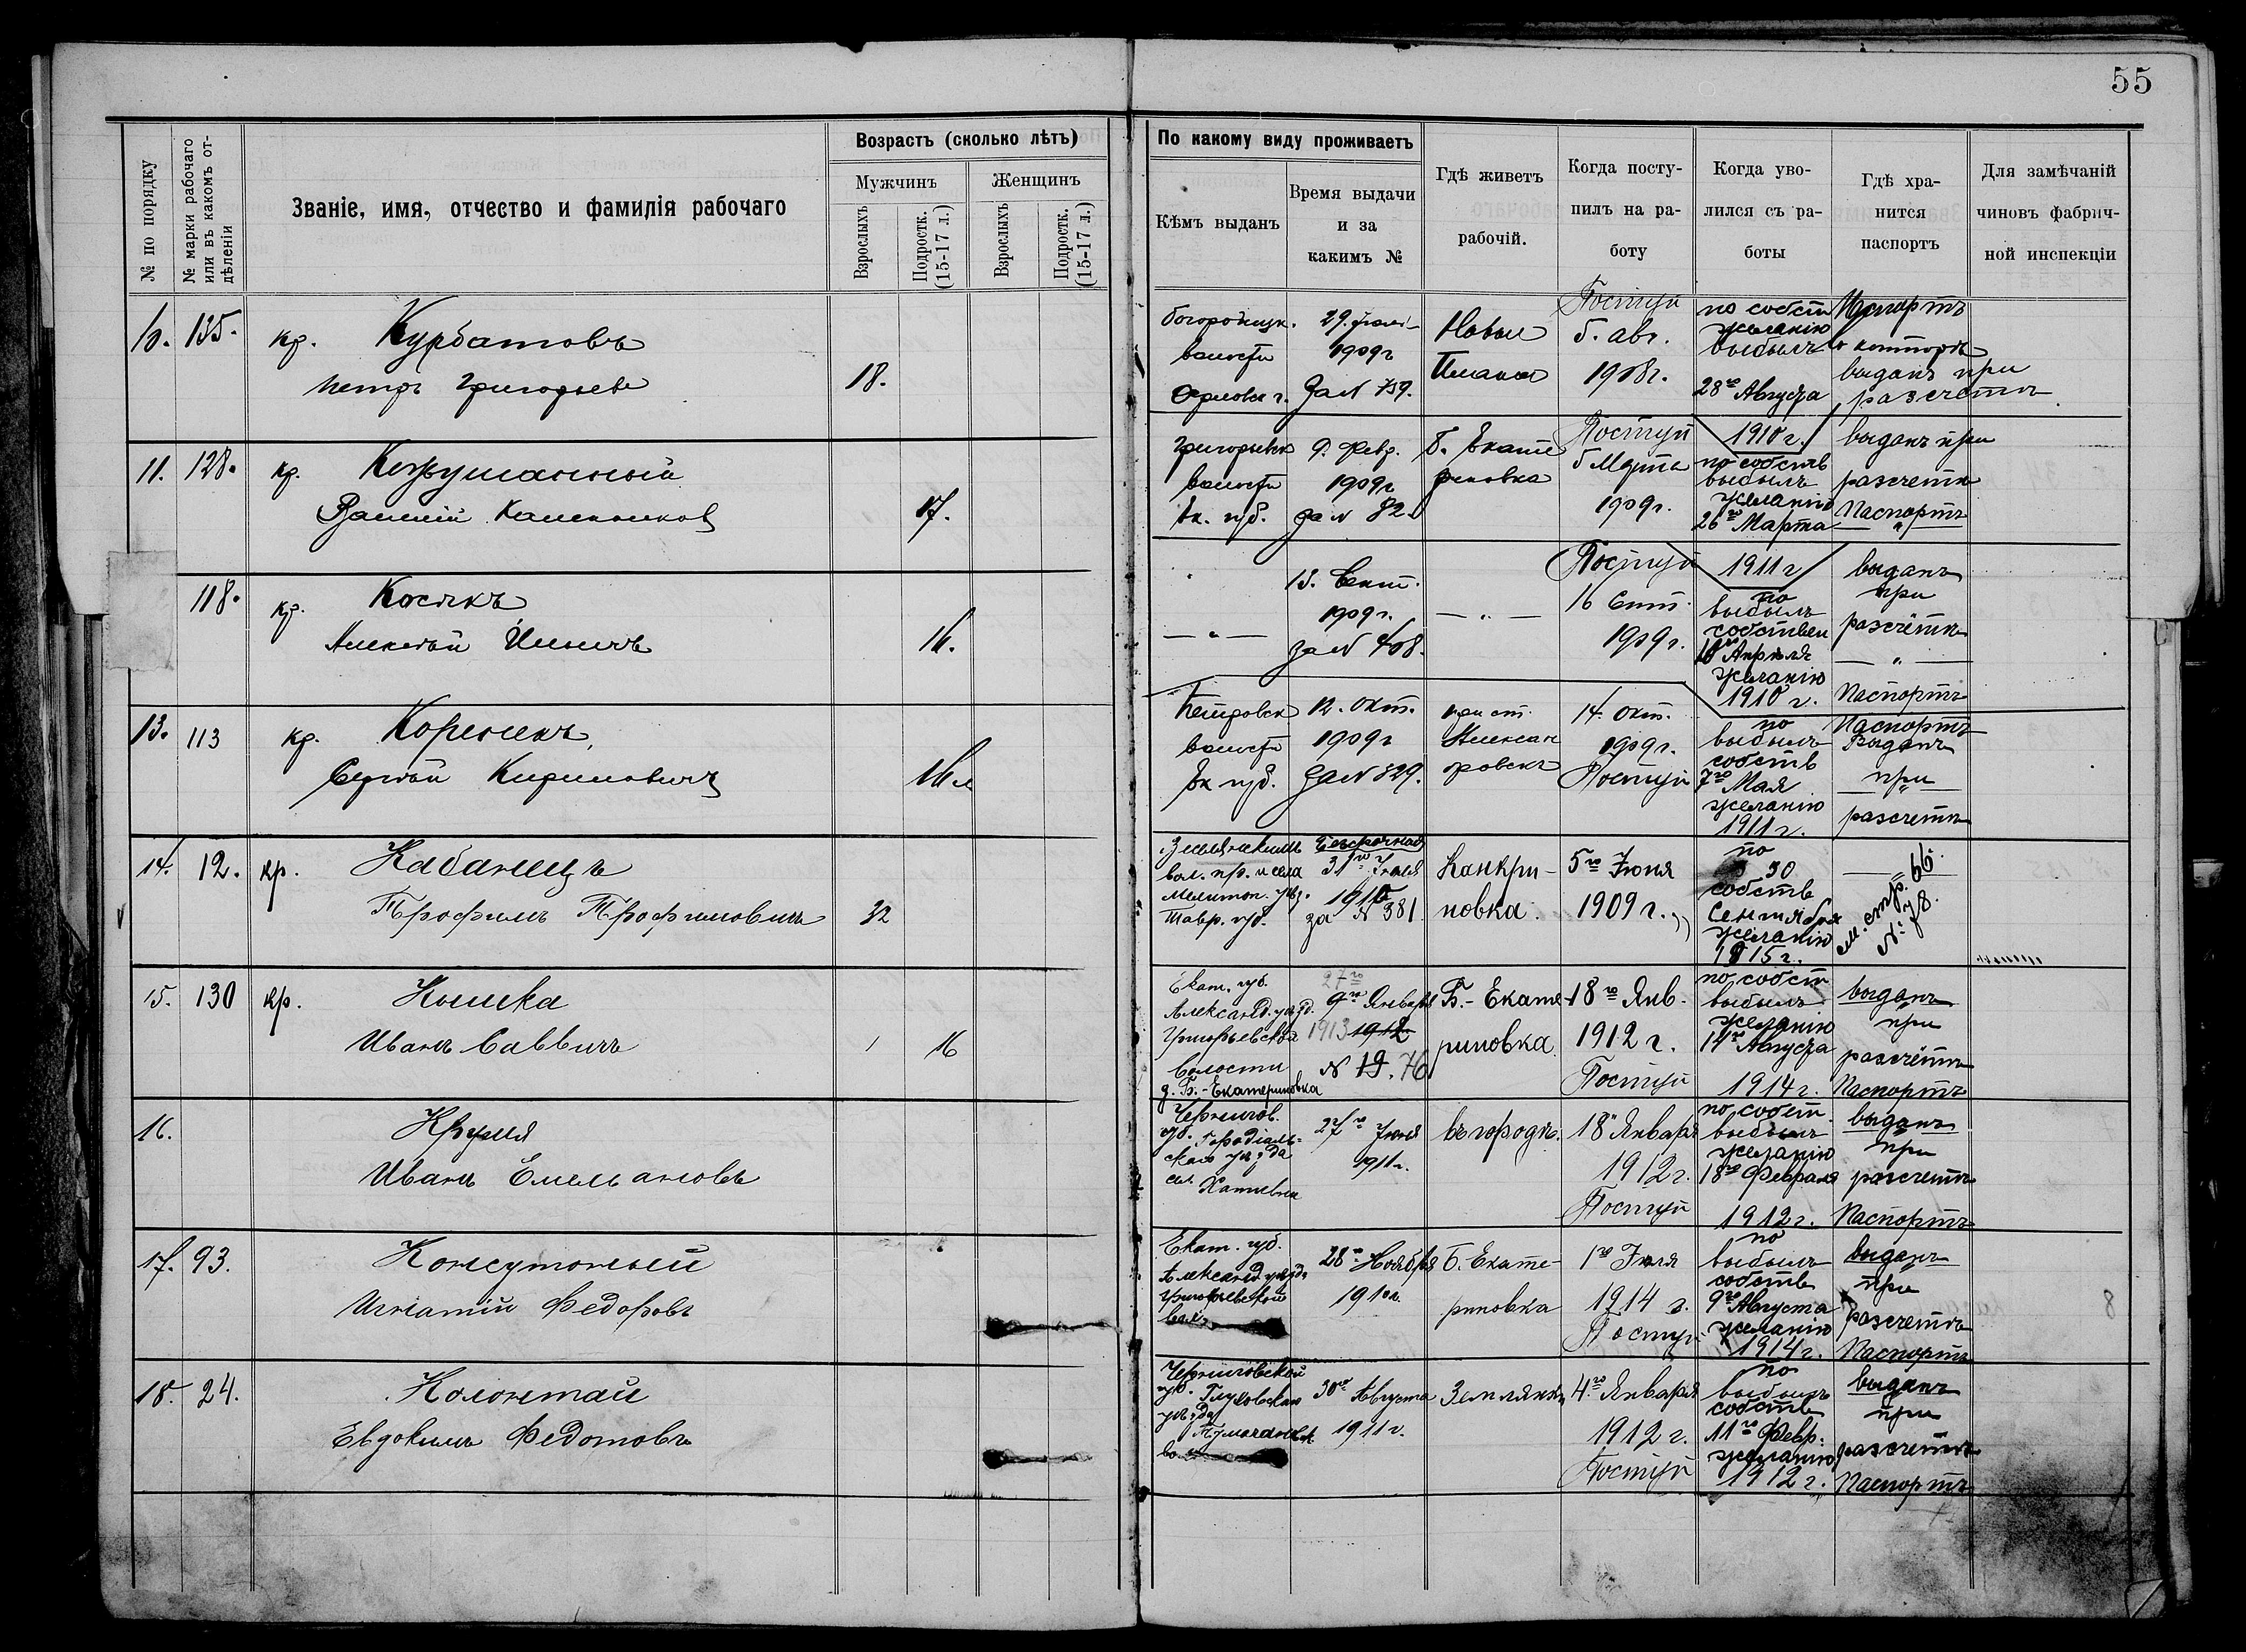 55
№ по порядку
№ марки рабочаго или въ какомъ отдѣленіи
Званіе, имя, отчество и фамилія рабочаго
Возрастъ (сколько лѣтъ)
Мужчинъ
Женщинъ
Взрослыхъ
Подростк. (15-17 л.)
Взрослыхъ
Подростк. (15-17 л.)
По какому виду проживаетъ
Кѣмъ выданъ
Время выдачи
и за
какимъ №
Гдѣ живетъ
рабочій.
Когда посту-
пилъ на ра-
боту
Когда уво-
лился съ ра-
боты
Гдѣ хра-
нится
паспортъ
Для замѣчаній
чиновъ фабрич-
ной инспекціи
10. 135. кр. Курбатовъ
Петръ Григорьев
18.
волости
Орловск г.
29.
1909г
за N 759.
Новый
Планъ
Поступи
5. авг.
1908г.
по собств
желанію
выбылъ
28го Августа
1910 г.
Паспортъ
в конторѣ
выданъ при
разсчетѣ
11. 128. кр.
17.
Григорьевск
волости
Ек. губ.
9. Февр.
1909г
за N 82.
Б. Екате
риновка
Поступи
5 Марта
1909г.
по собств
выбылъ
желанію
26го Марта
1911 г
выданъ при
разсчетѣ
Паспортъ
118. кр. Косякъ
Алексѣй Ильичъ
16.
— " —
15. Сент.
1909г.
за N 408.
— " —
Поступи
16 Сент.
1909г.
по
выбылъ
собствен
Апрѣля
желанію
1910 г.
выданъ
при
разсчётѣ
— " —
Паспортъ
13. 113 кр. Коренекъ,
Сергѣй Кириловичъ
16 л
Петровск
волости
Ек губ.
12. окт.
1909г
за N 329.
при ст.
Алексан
ровскъ
14. окт.
1909г.
Поступи
по
выбылъ
собств
7го Мая
желанію
1911 г.
Паспортъ
Выданъ
при
разсчетѣ
14. 12. кр. Кабанецъ
Трофимъ Трофимовичъ
32
вол. пр. и села
Мелитоп. уѣз.
Тавр. губ.
Безсрочная
31го Іюля
за N 381
Канкри-
новка.
5го Іюня
1909 г.
по
30
собств
Сентября
желанію
1915 г.
см. стр. 66.
N: 78.
15. 130 кр. Кошка
Иванъ Саввичъ
16
Екат. губ.
Александ. уѣзд.
Григорьевской
Волости
д. Б.-Екатериновка
27го
9го Января
1913 1912
N 19. 76
Б.-Екате-
риновка.
18го Янв.
1912 г.
Поступи
по собст
выбылъ
желанію
14го Августа
1914 г.
выданъ
при
разсчётѣ
Паспортъ
16.
Иванъ Емельановъ
Чернигов.
губ.
27го Іюня
1911г.
въ городѣ.
18" Января
1912 г.
Поступи
по собст
выбылъ
желанію
18го Февраля
1912 г.
выданъ
при
разсчетѣ
Паспортъ
17. 93.
Игнатій Федоровъ
Екат. губ.
Александ уѣзд
Григорьевской
вол.
28го Ноября
1910г.
Б. Екате-
риновка
1го Іюля
1914 г.
Поступ
по
выбылъ
собств
9го Августа
желанію
1914 г.
выданъ
при
разсчетѣ
Паспортъ
18. 24. Колонтай
Евдокимъ Федотовъ
Черниговской
губ. Глуховскаго
уѣзда
30го Августа
1911 г.
Землянки
4го Января
1912 г.
Поступи
по
выбылъ
собств
11го Февр.
желанію
1912 г.
выданъ
при
разсчетѣ
Паспортъ